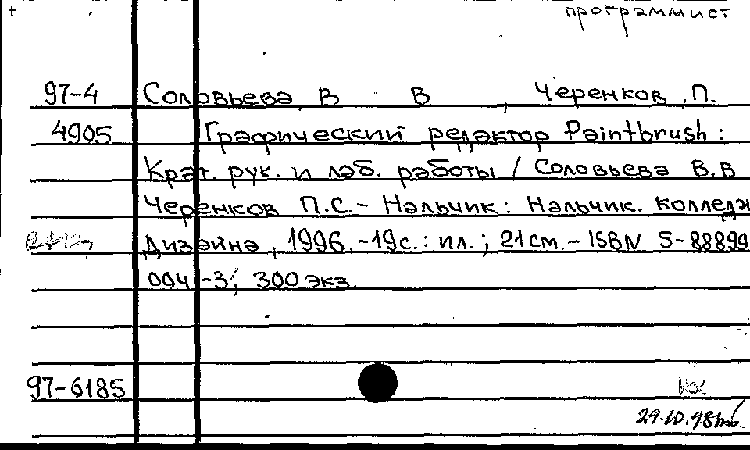 программист
97-4 Соловьева, В В , Черенков, П.
4905 Графический редактор Paintbrush :
Крат. рук. и лаб. работы / Соловьева В.В
Черенков П.С. - Нальчик : Нальчик. колледж
Дизайна, 1996. - 19с. : ил. ; 21см. - ISBN 5-88899
004-3; 300 экз.
97-6185
29.10.98